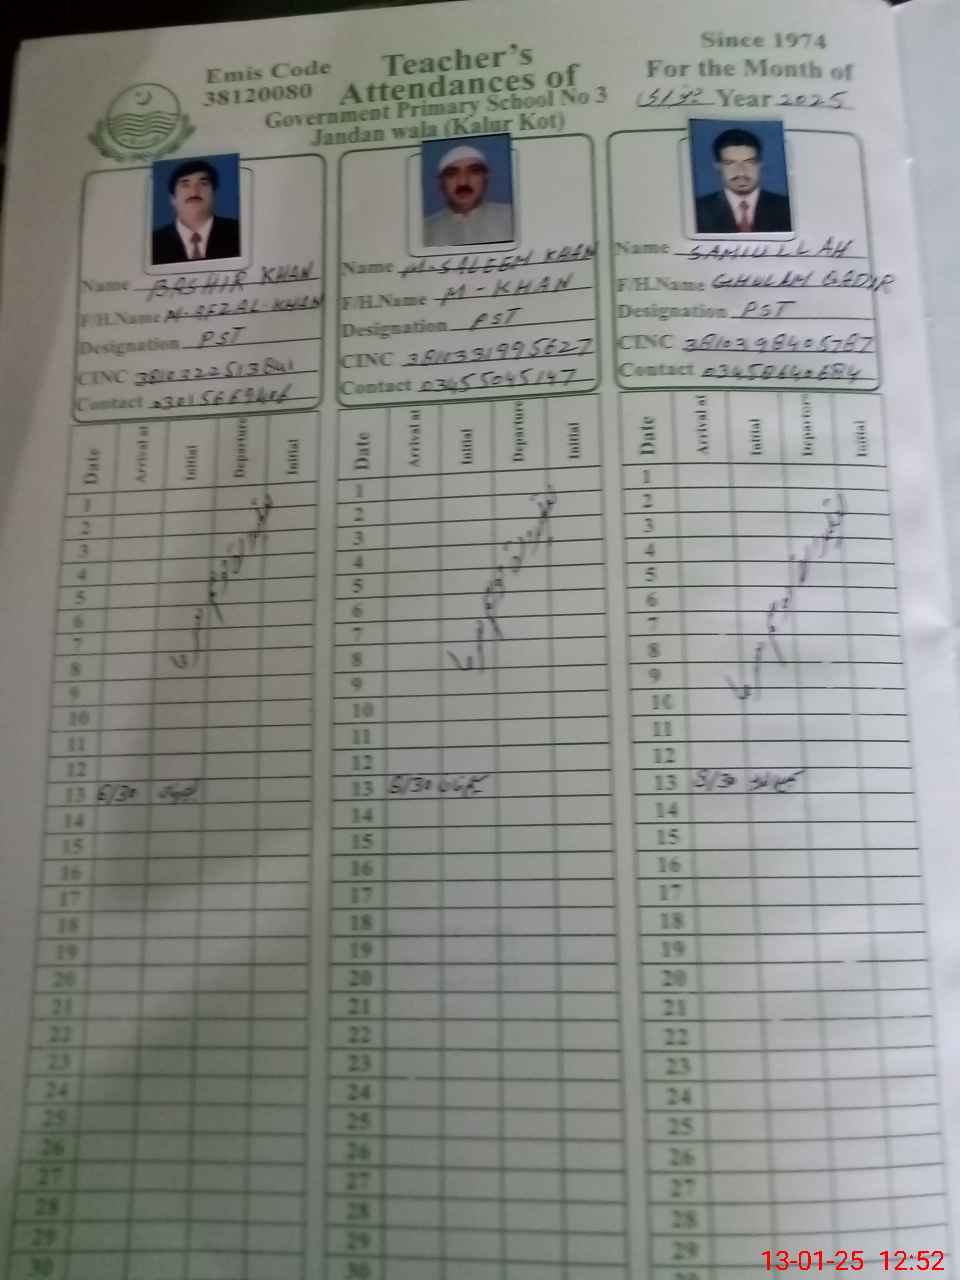 Since 1974
Emis Code
38120080
Teacher's
Attendances of
Government Primary School No 3
Jandan wala (Kalur Kot)
For the Month of
جنوری Year 2025
Name BASHIR KHAN
F/H.Name M-AFZAL-KHAN
Designation PST
CINC 3810322513841
Contact 03015669406
Date Arrival at Initial Departure Initial
1
2
3
4
5
6
7
8
9
10
11
12
13 8/30
14
15
16
17
18
19
20
21
22
23
24
25
26
27
28
29
30
Name M-SALEEM KHAN
F/H.Name M-KHAN
Designation PST
CINC 3810331995627
Contact 03455045147
Date Arrival at Initial Departure Initial
1
2
3
4
5
6
7
8
9
10
11
12
13 8/30
14
15
16
17
18
19
20
21
22
23
24
25
26
27
28
29
30
Name SAMIULLAH
F/H.Name GHULAM QADIR
Designation PST
CINC 3810398405787
Contact 03458640684
Date Arrival at Initial Departure Initial
1
2
3
4
5
6
7
8
9
10
11
12
13 8/30
14
15
16
17
18
19
20
21
22
23
24
25
26
27
28
29
13-01-25 12:52